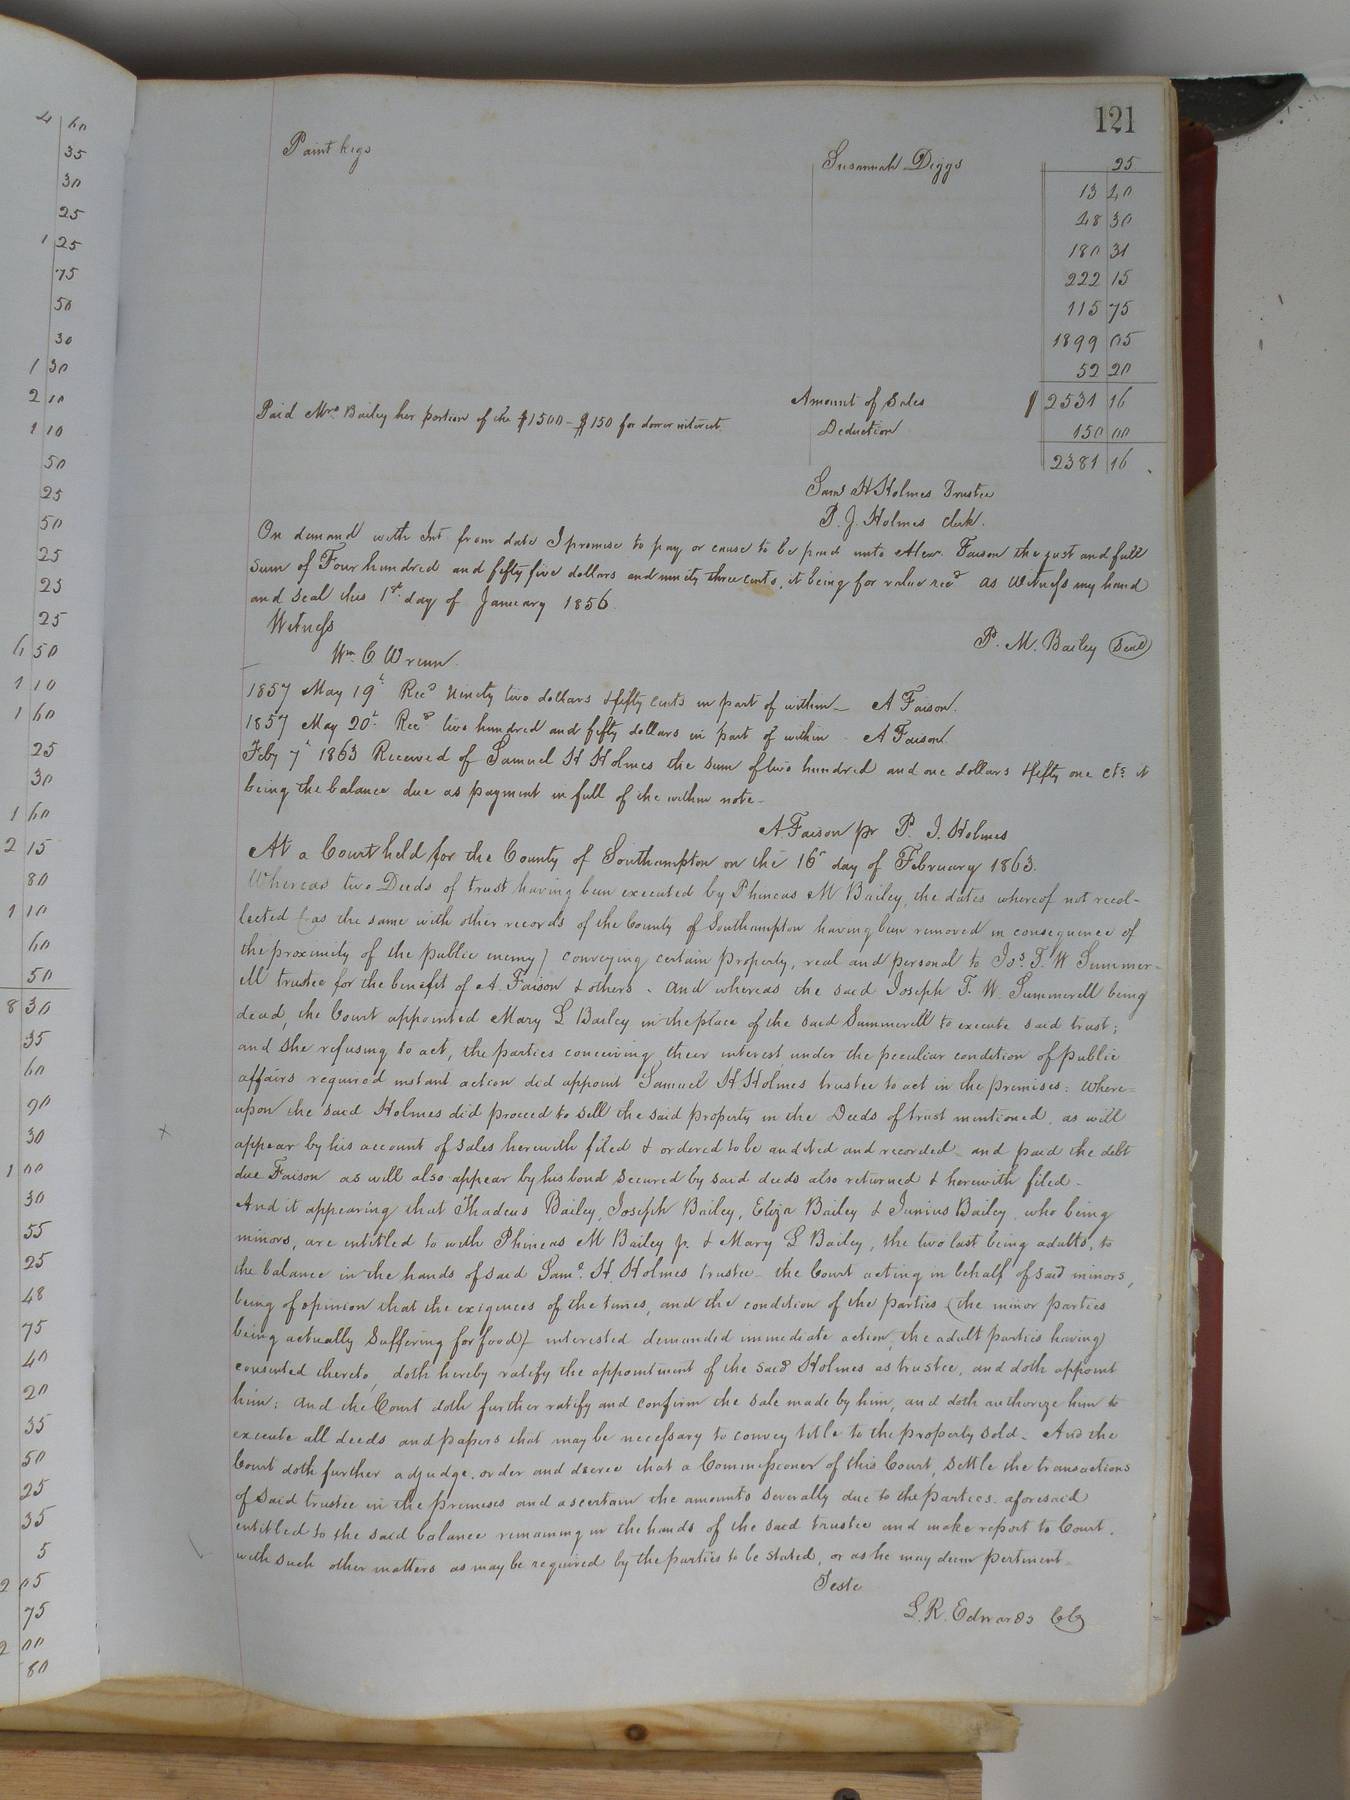 4 60
35
30
25
1 25
75
50
30
1 30
2 10
1 10
50
25
50
25
25
25
6 50
1 10
1 60
25
30
1 60
2 15
80
1 10
60
50
8 30
35
60
90
30
1 00
30
55
25
48
75
40
20
35
50
25
35
5
2 05
75
2 00
80
121
Paint kegs Susannah Diggs 25
13 40
48 30
180 31
222 15
115 75
1899 05
52 20
Amount of Sales $ 2531 16
Paid Mrs Bailey her portion of the $1500 - $150 for dower interest. Deduction 150 00
2381 16
Saml H Holmes Trustee
P. J. Holmes Clerk.
On demand with Int. from date I promise to pay or cause to be paid unto Alex. Faison the just and full
sum of Four hundred and fifty five dollars and ninety three cents, it being for value recd as Witness my hand
and seal this 1st day of January 1856.
Witness
P. M. Bailey (Seal)
Wm C Wrenn.
1857 May 19th Recd Ninety two dollars & fifty cents in part of within - A Faison.
1857 May 20th Recd two hundred and fifty dollars in part of within - A Faison.
Feby 7th 1863 Received of Samuel H Holmes the sum of two hundred and one dollars & fifty one cts it
being the balance due as payment in full of the within note -
A. Faison pr P. J. Holmes
At a Court held for the County of Southampton on the 16th day of February 1863.
Whereas two Deeds of trust having been executed by Phineas M Bailey, the dates whereof not recol-
lected (as the same with other records of the County of Southampton having been removed in consequence of
the proximity of the public enemy) conveying certain property, real and personal to Jos. T. W Summer-
ell trustee for the benefit of A. Faison & others - And whereas the said Joseph T. W. Summerell being
dead, the Court appointed Mary L Bailey in the place of the said Summerell to execute said trust;
and she refusing to act, the parties conceiving their interest under the peculiar condition of public
affairs required instant action did appoint Samuel H Holmes trustee to act in the premises: Where-
upon the said Holmes did proceed to sell the said property in the Deeds of trust mentioned, as will
appear by his account of sales herewith filed & ordered to be audited and recorded - and paid the debt
due Faison as will also appear by his bond secured by said deeds also returned & herewith filed -
And it appearing that Thadeus Bailey, Joseph Bailey, Eliza Bailey & Junius Bailey, who being
minors, are entitled to with Phineas M Bailey jr. & Mary L Bailey, the two last being adults, to
the balance in the hands of said Saml. H. Holmes trustee - the Court acting in behalf of said minors,
being of opinion that the exigences of the times, and the condition of the parties (the minor parties
being actually suffering for food) interested demanded immediate action, the adult parties having
consented thereto, doth hereby ratify the appointment of the said Holmes as trustee, and doth appoint
him: And the Court doth further ratify and confirm the sale made by him, and doth authorize him to
execute all deeds and papers that may be necessary to convey title to the property sold - And the
Court doth further adjudge, order and decree that a Commissioner of this Court, settle the transactions
of said trustee in the premises and ascertain the amounts severally due to the parties aforesaid
entitled to the said balance remaining in the hands of the said trustee and make report to Court,
with such other matters as may be required by the parties to be stated, or as he may deem pertinent -
Teste
L. R. Edwards Clk